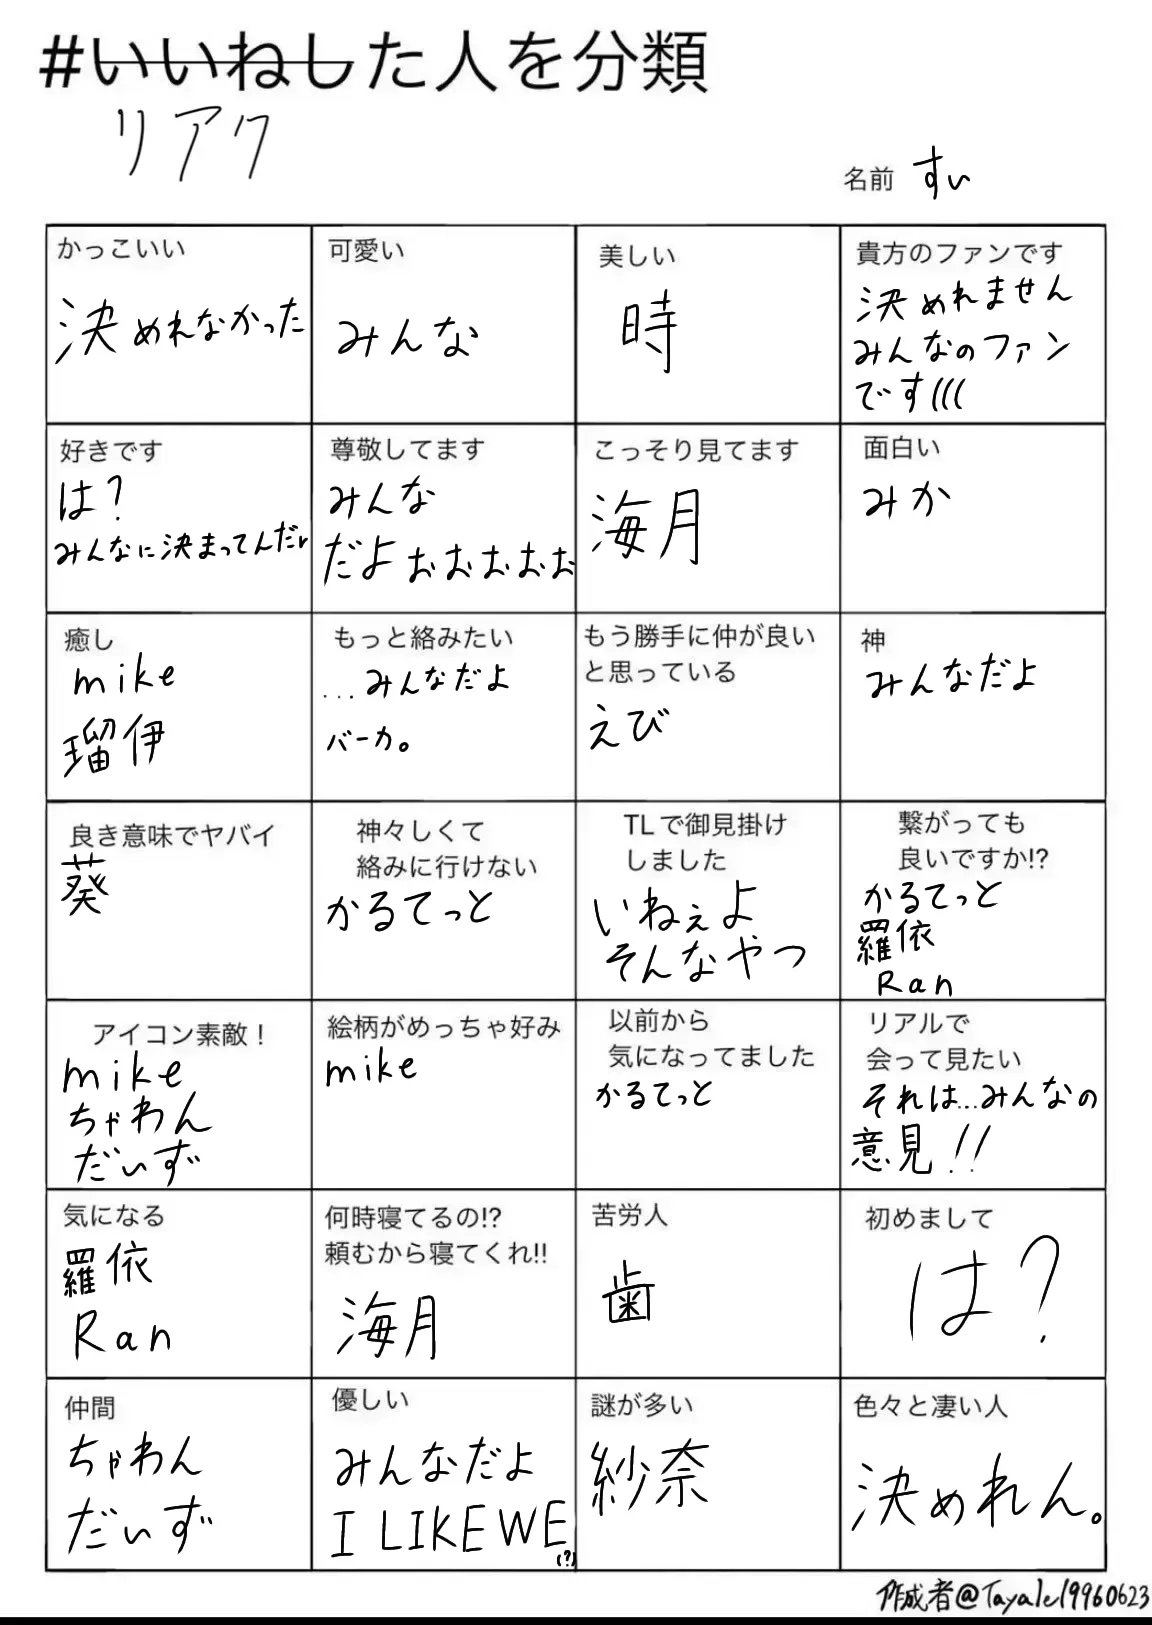 #いいねした人を分類
リアク
名前 すい
かっこいい
決めれなかった
可愛い
みんな
美しい
時
貴方のファンです
決めれません
みんなのファン
です(((
好きです
は?
みんなに決まってんだr
尊敬してます
みんな
だよぉぉぉぉぉ
こっそり見てます
海月
面白い
みか
癒し
mike
瑠伊
もっと絡みたい
...みんなだよ
バーカ。
もう勝手に仲が良い
と思っている
えび
神
みんなだよ
良き意味でヤバイ
葵
神々しくて
絡みに行けない
かるてっと
TLで御見掛け
しました
いねぇよ
そんなやつ
繋がっても
良いですか!?
かるてっと
羅依
Ran
アイコン素敵!
mike
ちゃわん
だいず
絵柄がめっちゃ好み
mike
以前から
気になってました
かるてっと
リアルで
会って見たい
それは...みんなの
意見!!
気になる
羅依
Ran
何時寝てるの!?
頼むから寝てくれ!!
海月
苦労人
歯
初めまして
は?
仲間
ちゃわん
だいず
優しい
みんなだよ
I LIKE WE
(?)
謎が多い
紗奈
色々と凄い人
決めれん。
作成者@Tayale19960623